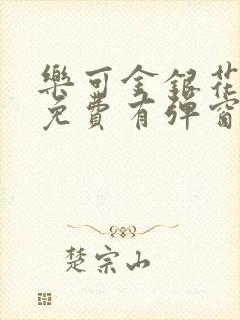 樂可金銀花
免費有彈窗
楚宗山